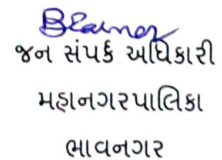 જન સંપર્ક અધિકારી
મહાનગરપાલિકા
ભાવનગર